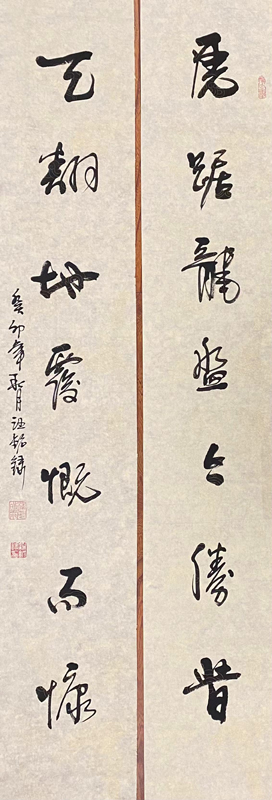 虎踞龍盤今勝昔
天翻地覆慨而慷
癸卯年 月 汪銘録